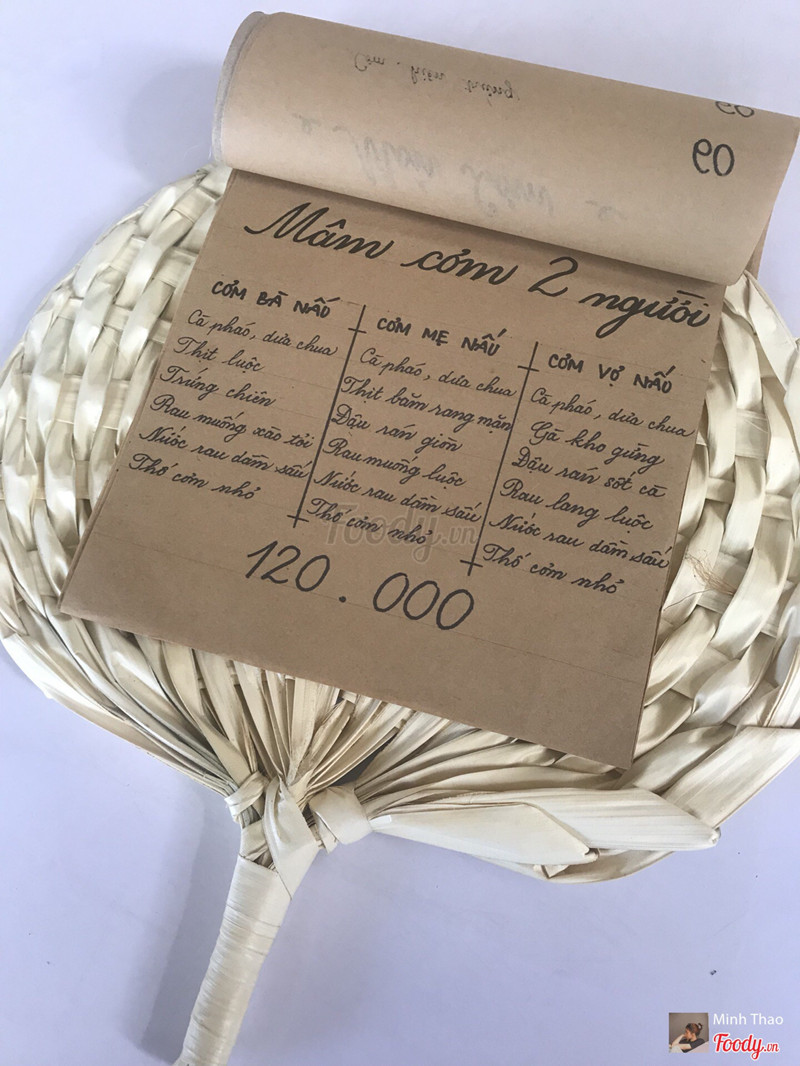 60
Mâm cơm 2 người
CƠM BÀ NẤU
Cà pháo, dưa chua
Thịt luộc
Trứng chiên
Rau muống xào tỏi
Nước rau dầm sấu
Thố cơm nhỏ
CƠM MẸ NẤU
Cà pháo, dưa chua
Thịt băm rang mặn
Đậu rán giòn
Rau muống luộc
Nước rau dầm sấu
Thố cơm nhỏ
CƠM VỢ NẤU
Cà pháo, dưa chua
Gà kho gừng
Đậu rán sốt cà
Rau lang luộc
Nước rau dầm sấu
Thố cơm nhỏ
120.000
Foody.vn
Minh Thao
Foody.vn